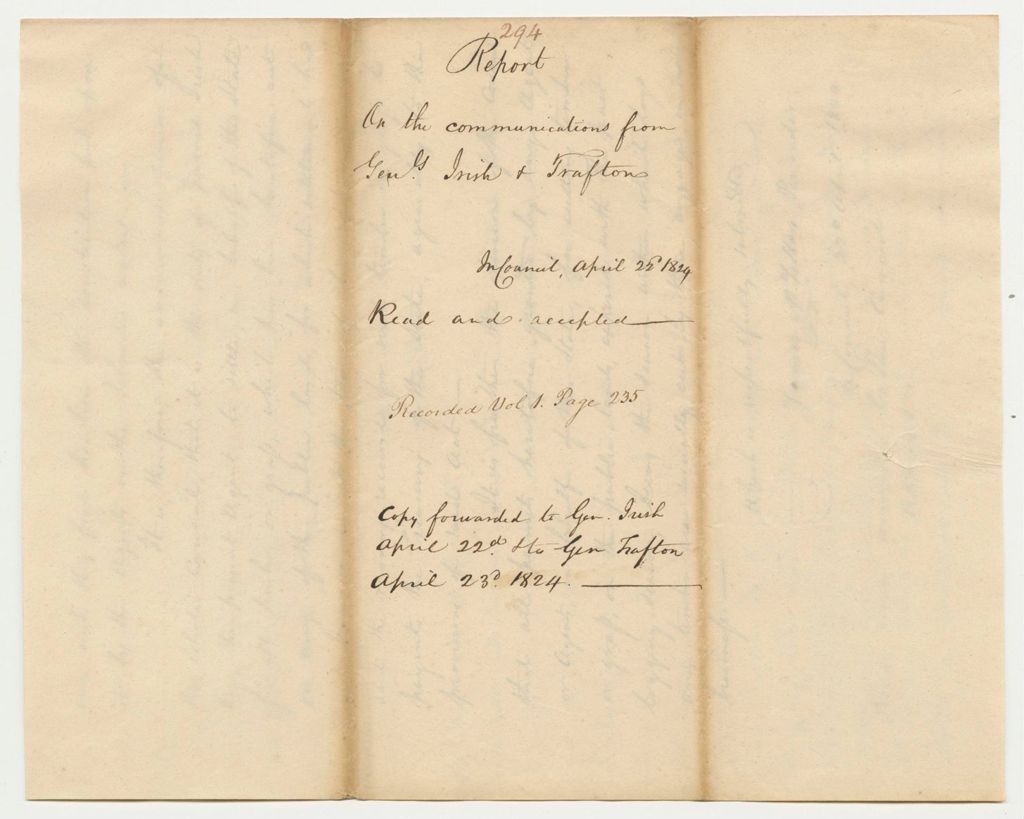 294
Report
On the communications from
Genls Irish & Trafton
In Council, April 22d 1824
Read and accepted
Recorded Vol 1. Page 235
Copy forwarded to Gen. Irish
April 22d & to Gen Trafton
April 23d 1824.